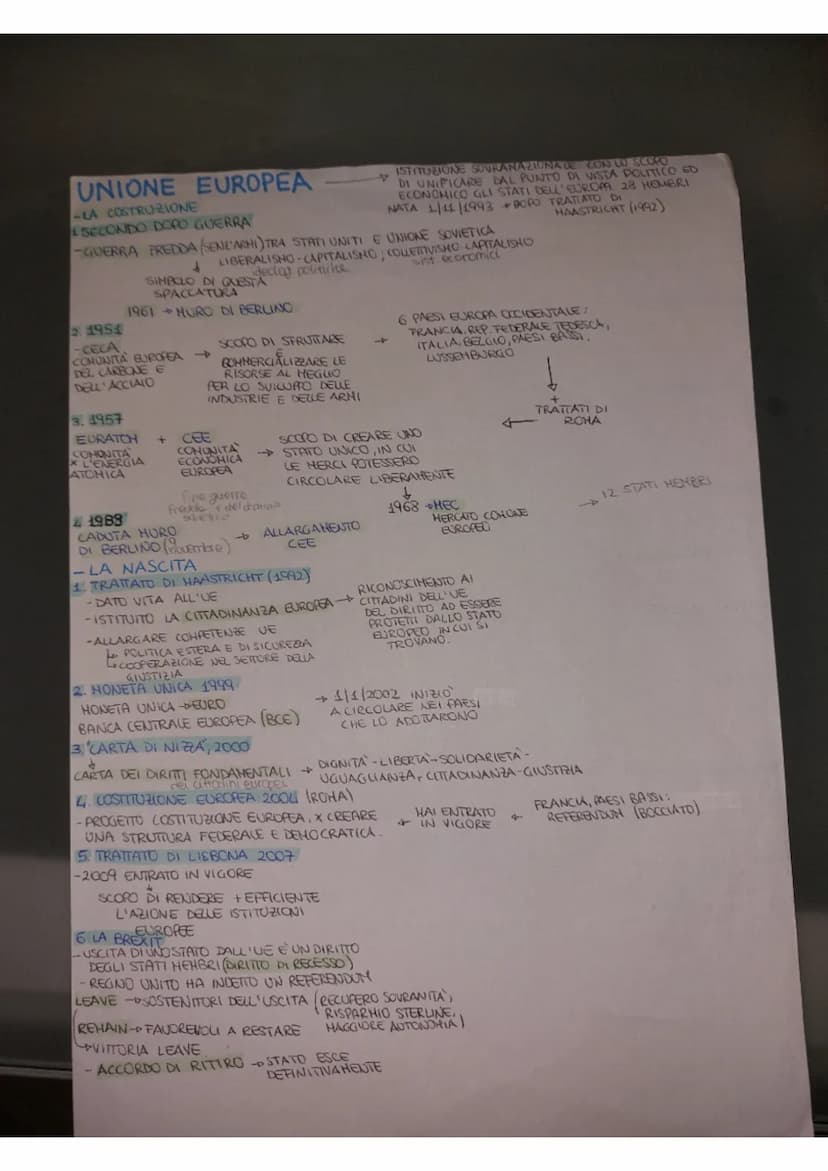 UNIONE EUROPEA → ISTITUZIONE SOVRANAZIONALE CON LO SCOPO
DI UNIFICARE DAL PUNTO DI VISTA POLITICO ED
ECONOMICO GLI STATI DELL'EUROPA. 28 MEMBRI
NATA 1/11/1993 → DOPO TRATTATO DI
MAASTRICHT (1992)
- LA COSTRUZIONE
1. SECONDO DOPO GUERRA
- GUERRA FREDDA (SENZ'ARMI) TRA STATI UNITI E UNIONE SOVIETICA
LIBERALISMO - CAPITALISMO ; COLLETTIVISMO CAPITALISMO
ideolog politiche sist economici
↓
SIMBOLO DI QUESTA
SPACCATURA
1961 → MURO DI BERLINO
2. 1951
- CECA
COMUNITÀ EUROPEA
DEL CARBONE E
DELL'ACCIAIO
→ SCOPO DI SFRUTTARE
E
COMMERCIALIZZARE LE
RISORSE AL MEGLIO
PER LO SVILUPPO DELLE
INDUSTRIE E DELLE ARMI
→ 6 PAESI EUROPA OCCIDENTALE:
FRANCIA, REP. FEDERALE TEDESCA,
ITALIA, BELGIO, PAESI BASSI,
LUSSEMBURGO
↓
+
TRATTATI DI
ROMA
←
3. 1957
EURATOM + CEE
COMUNITÀ
X L'ENERGIA
ATOMICA
COMUNITÀ
ECONOMICA
EUROPEA
→ SCOPO DI CREARE UNO
STATO UNICO, IN CUI
LE MERCI POTESSERO
CIRCOLARE LIBERAMENTE
↓
1968 → MEC
MERCATO COMUNE
EUROPEO
→ 12 STATI MEMBRI
fine guerra
fredda e del dominio
sovietico
4. 1989
CADUTA MURO
DI BERLINO (9 novembre)
→ ALLARGAMENTO
CEE
- LA NASCITA
1. TRATTATO DI MAASTRICHT (1992)
- DATO VITA ALL'UE
- ISTITUITO LA CITTADINANZA EUROPEA → RICONOSCIMENTO AI
CITTADINI DELL'UE
DEL DIRITTO AD ESSERE
PROTETTI DALLO STATO
EUROPEO IN CUI SI
TROVANO.
- ALLARGARE COMPETENZE UE
↳ POLITICA ESTERA E DI SICUREZZA
↳ COOPERAZIONE NEL SETTORE DELLA
GIUSTIZIA
2. MONETA UNICA 1999
MONETA UNICA → EURO
BANCA CENTRALE EUROPEA (BCE)
→ 1/1/2002 INIZIÒ
A CIRCOLARE NEI PAESI
CHE LO ADOTTARONO
3. "CARTA DI NIZZA", 2000
↓
CARTA DEI DIRITTI FONDAMENTALI
dei cittadini europei
→ DIGNITÀ - LIBERTÀ - SOLIDARIETÀ -
UGUAGLIANZA, CITTADINANZA - GIUSTIZIA
4. COSTITUZIONE EUROPEA 2004 (ROMA)
- PROGETTO COSTITUZIONE EUROPEA, X CREARE
UNA STRUTTURA FEDERALE E DEMOCRATICA.
← MAI ENTRATO
IN VIGORE
← FRANCIA, PAESI BASSI:
REFERENDUM (BOCCIATO)
5. TRATTATO DI LISBONA 2007
- 2009 ENTRATO IN VIGORE
↓
SCOPO DI RENDERE + EFFICIENTE
L'AZIONE DELLE ISTITUZIONI
EUROPEE
6 LA BREXIT
- USCITA DI UNO STATO DALL'UE È UN DIRITTO
DEGLI STATI MEMBRI (DIRITTO DI RECESSO)
- REGNO UNITO HA INDETTO UN REFERENDUM
LEAVE → SOSTENITORI DELL'USCITA (RECUPERO SOVRANITÀ,
RISPARMIO STERLINE,
MAGGIORE AUTONOMIA)
REMAIN → FAVOREVOLI A RESTARE
↳ VITTORIA LEAVE
- ACCORDO DI RITIRO → STATO ESCE
DEFINITIVAMENTE